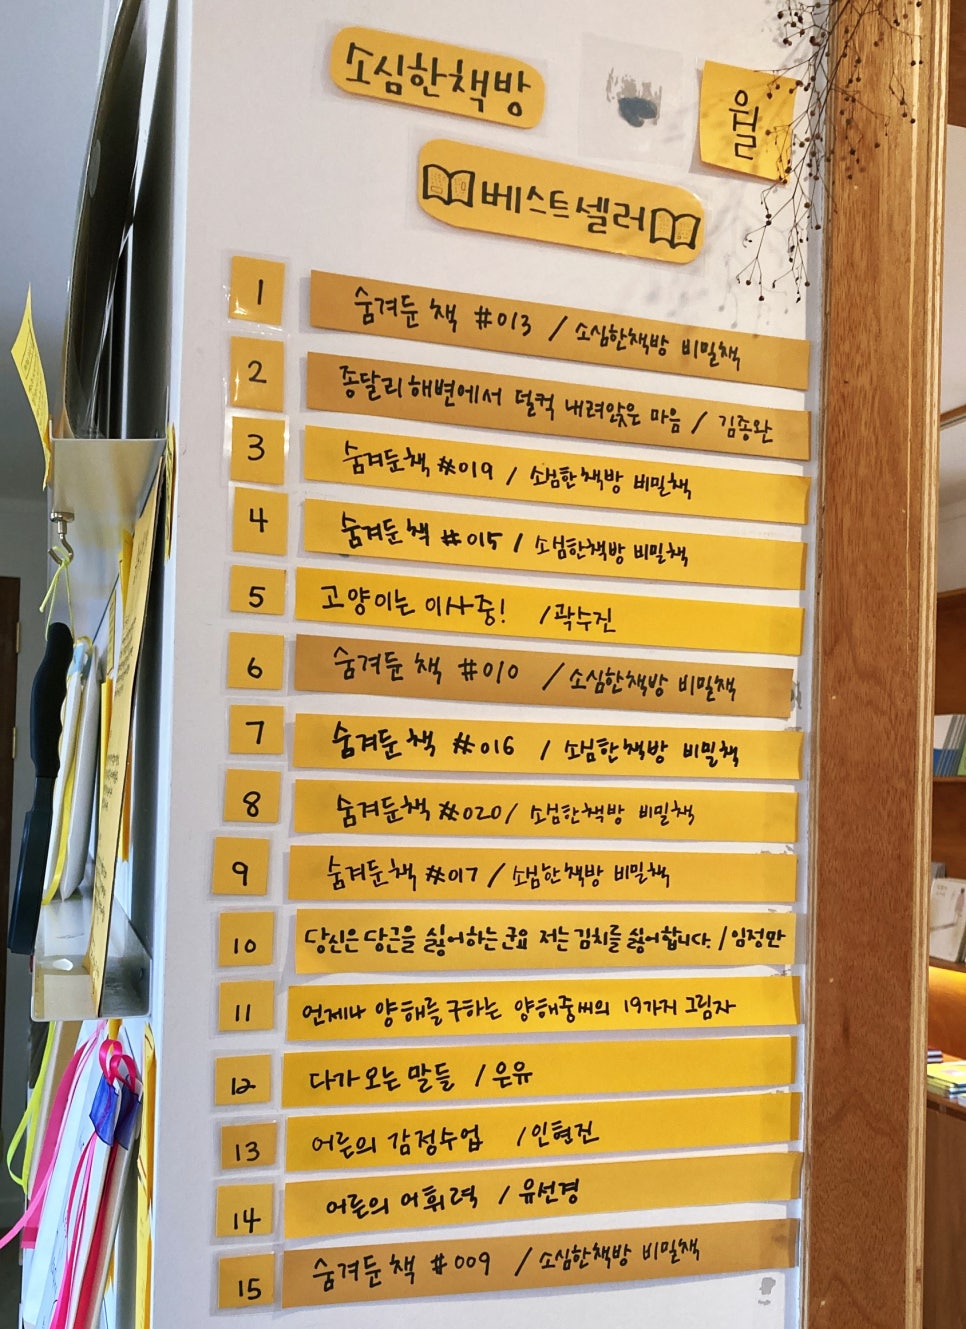 소심한책방
월
베스트셀러
1 숨겨둔 책 #013 / 소심한책방 비밀책
2 종달리 해변에서 덜컥 내려앉은 마음 / 김종완
3 숨겨둔책 #019 / 소심한책방 비밀책
4 숨겨둔책 #015 / 소심한책방 비밀책
5 고양이는 이사중! / 곽수진
6 숨겨둔 책 #010 / 소심한책방 비밀책
7 숨겨둔 책 #016 / 소심한책방 비밀책
8 숨겨둔책 #020 / 소심한책방 비밀책
9 숨겨둔책 #017 / 소심한책방 비밀책
10 당신은 당근을 싫어하는군요 저는 김치를 싫어합니다. / 임정만
11 언제나 양해를 구하는 양해중씨의 19가지 그림자
12 다가오는 말들 / 은유
13 어른의 감정수업 / 인현진
14 어른의 어휘력 / 유선경
15 숨겨둔 책 #009 / 소심한책방 비밀책